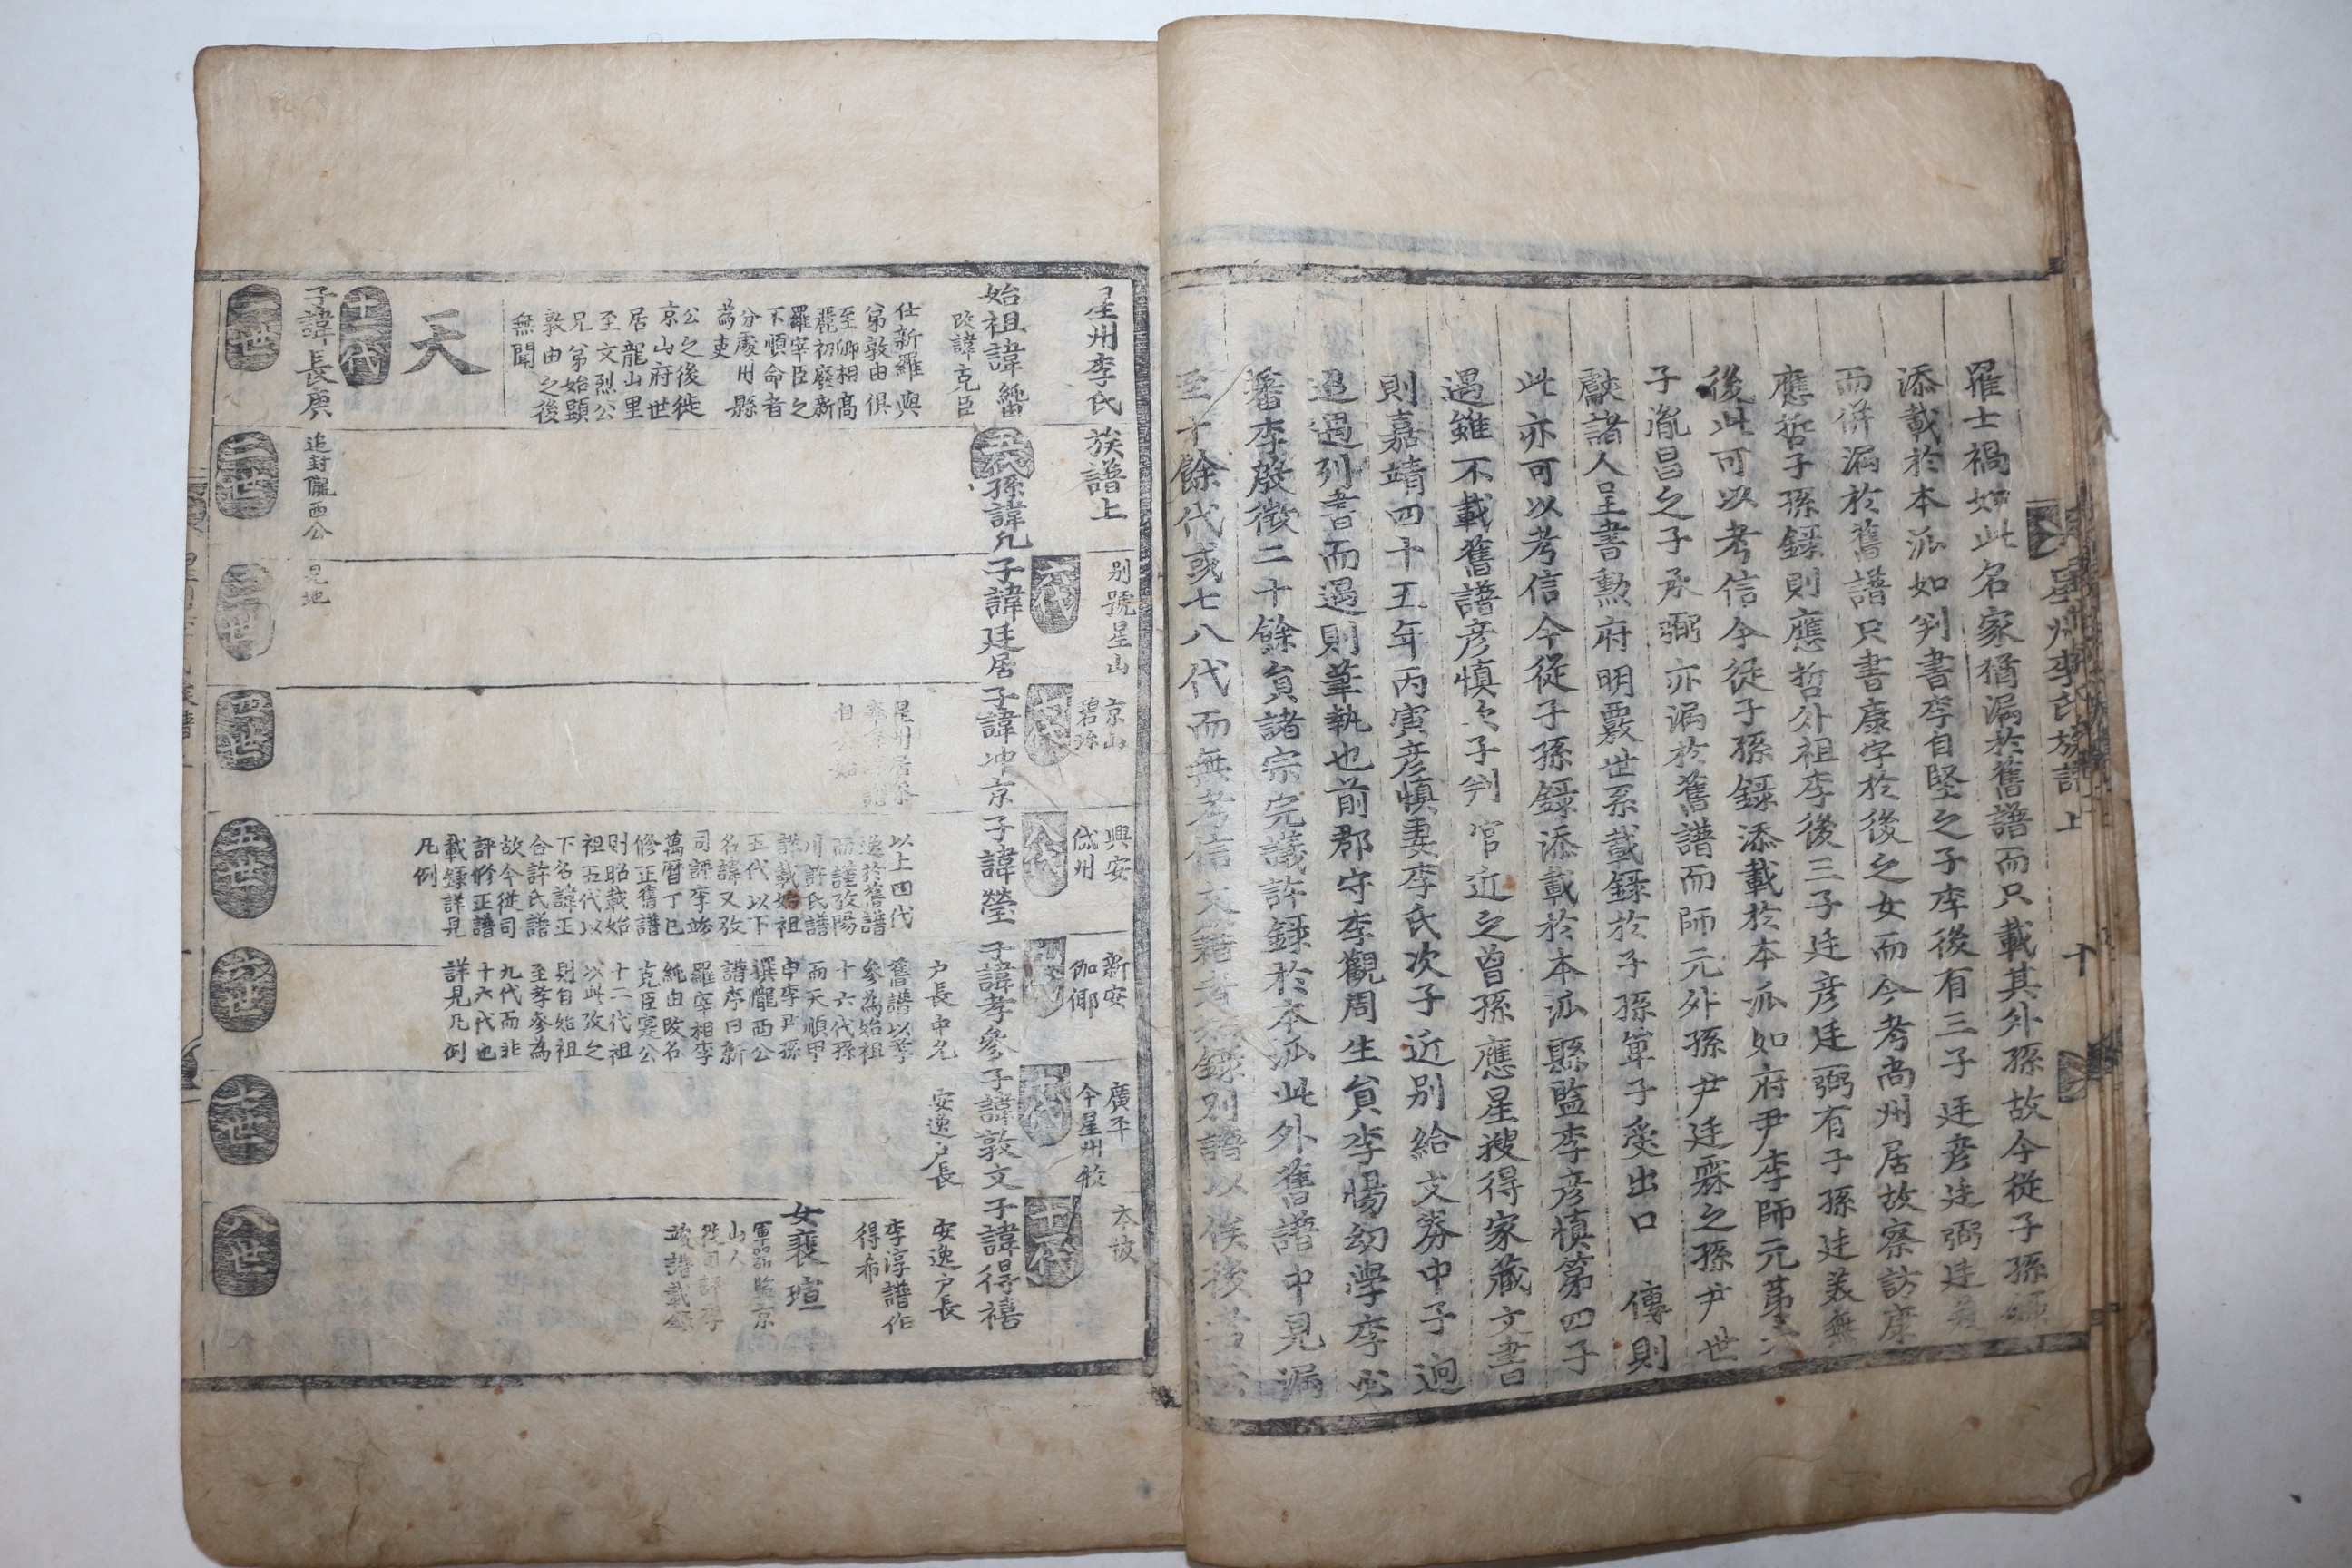 星州李氏族譜上
十
羅士禍如此名家猶漏於舊譜而只載其外孫故今從子孫
添載於本派如判書李自堅之子李後有三子廷彦廷弼廷
而倂漏於舊譜只書康字於後之女而今考尙州居故察訪康
應哲子孫錄則應哲外祖李後三子廷彦廷弼有子孫廷美無
後此可以考信今從子孫錄添載於本派如府尹李師元第
子胤昌之子承弼亦漏於舊譜而師元外孫尹廷霖之孫尹世
獻諸人呈書勳府明覈世系載錄於子孫單子受出口傳則
此亦可以考信今從子孫錄添載於本派縣監李彦愼第四子
遇雖不載舊譜彦愼次子判官近之曾孫應星搜得家藏文書
則嘉靖四十五年丙寅彦愼妻李氏次子近別給文券中子逈
過遇列書而遇則筆執也前郡守李觀周生員李惕幼學李必
蕃李殷徵二十餘員諸宗完議許錄於本派此外舊譜中見漏
至十餘代或七八代而無考信文籍者 錄別譜以俟後考
星州李氏族譜上
別號星山
京山
碧珍
興安
岱州
新安
伽倻
廣平
今星州牧
本坡
始祖諱純由
改諱克臣
五代孫諱凡
六代
子諱廷居
七代
子諱冲京
八代
子諱瑩
九代
子諱孝參
十代
子諱敦文
十一代
子諱得禧
仕新羅與
弟敦由俱
至卿相高
麗初廢新
羅宰臣之
不順命者
分處州縣
為吏
公之後徙
京山府世
居龍山里
至文烈公
兄弟始顯
敦由之後
無聞
以上四代
逸於舊譜
而謹攷陽
川許氏譜
詳載始祖
五代以下
名諱又攷
司評李
萬曆丁巳
修正舊譜
則昭載始
祖五代以
下名諱正
合許氏譜
故今從司
評修正譜
載錄詳見
凡例
戶長中尹
舊譜以孝
參為始祖
十六代孫
而天順甲
申李尹孫
撰隴西公
譜序曰新
羅宰相李
純由改名
克臣寔公
十二代祖
以此攷之
則自始祖
至孝參為
九代而非
十六代也
詳見凡例
安逸戶長
安逸戶長
李淳譜作
得希
女裵瑄
軍器監京
山人
從司評李
譜載錄
天
十二代
子諱長庚
追封隴西公
見地
一世
二世
三世
四世
五世
六世
七世
八世